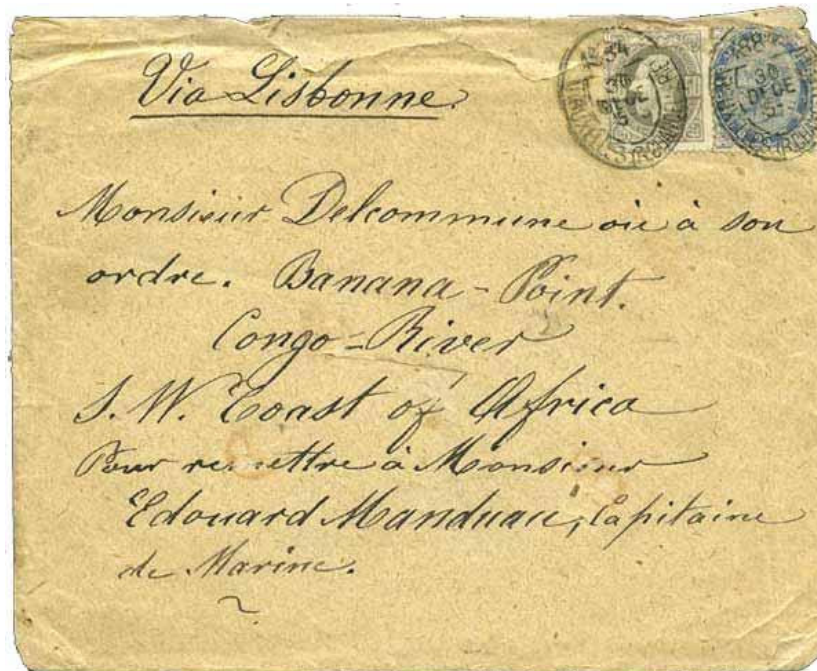 Via Lisbonne.
Monsieur Delcommune ou à son
ordre. Banana-Point.
Congo-River
S. W. Coast of Africa
Pour remettre à Monsieur
Edouard Manduau, Capitaine
de Marine.
30
DECE
30
DECE